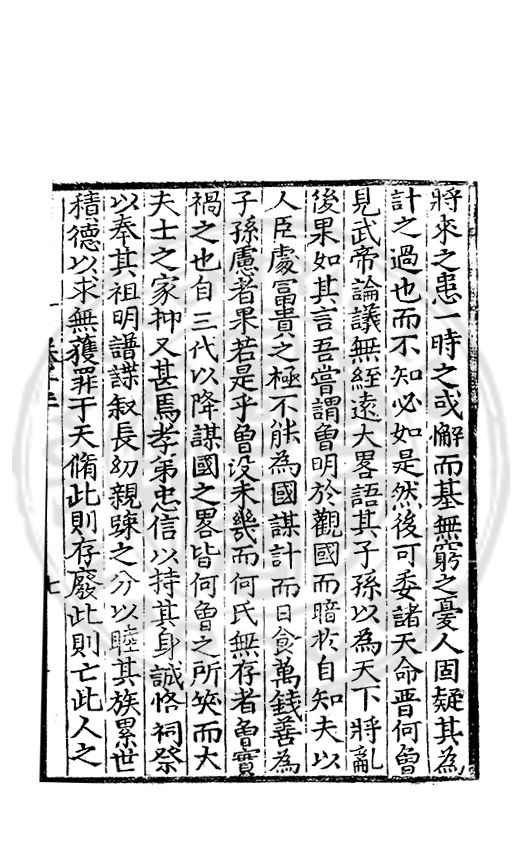 將來之患一時之或懈而基無窮之憂人固疑其為
計之過也而不知必如是然後可委諸天命晋何曾
見武帝論議無経遠大畧語其子孫以為天下將亂
後果如其言吾嘗謂曾明於觀國而暗扵自知夫以
人臣處冨貴之極不能為國謀計而日食萬錢善為
子孫慮者果若是乎曾没未幾而何氏無存者曾實
禍之也自三代以降謀國之畧皆何曾之所筴而大
夫士之家抑又甚焉孝弟忠信以持其身誠恪祠祭
以奉其祖明譜諜叙長幼親踈之分以睦其族累世
積德以求無獲罪于天脩此則存廢此則亡此人之
七